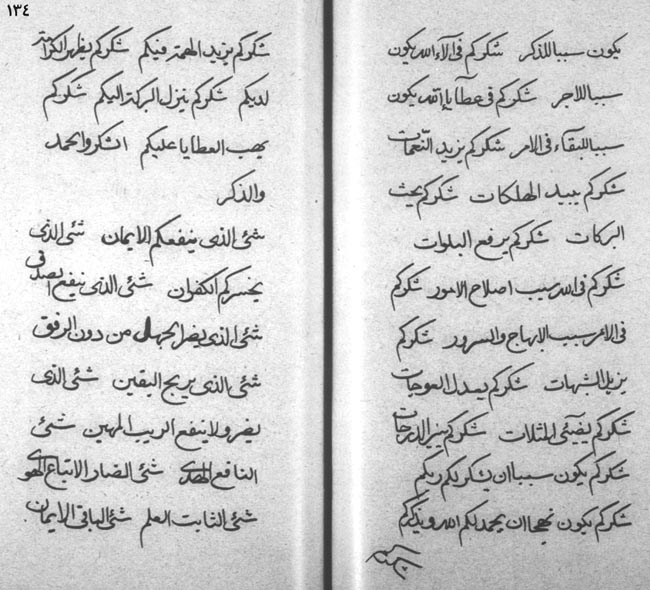 ١٣٤
يكون سببا للذكر شكركم فى آلاء الله يكون
سببا للاجر شكركم فى عطايا الله يكون
سببا للبقاء فى الامر شكركم يزيد النعمات
شكركم يبيد الهلكات شكركم يحث
البركات شكركم يرفع البلوات
شكركم فى الله سبب اصلاح الامور شكركم
فى الامر سبب الابهاج والسرور شكركم
يزيل الشبهات شكركم يعدل العوجات
شكركم يضئى المثلات شكركم ينزل الدرجات
شكركم يكون سببا ان يشكر لكم ربكم
شكركم يكون نهجا ان يحمد لكم الله ويذكركم
شكركم يزيد الهمة فيكم شكركم يظهر الكرامة
لديكم شكركم ينزل البركة اليكم شكركم
يهب العطايا عليكم الشكر والحمد
والذكر
شئى الذى ينفعكم الايمان شئى الذى
يخسركم الكفران شئى الذى ينفع الصدق
شئى الذى يضر الجهل من دون الرفق
شئى الذى يربح اليقين شئى الذى
يضر ولا ينفع الريب المهين شئى
النافع الهدى شئى الضار الاتباع الهوى
شئى الثابت العلم شئى الباقى الايمان